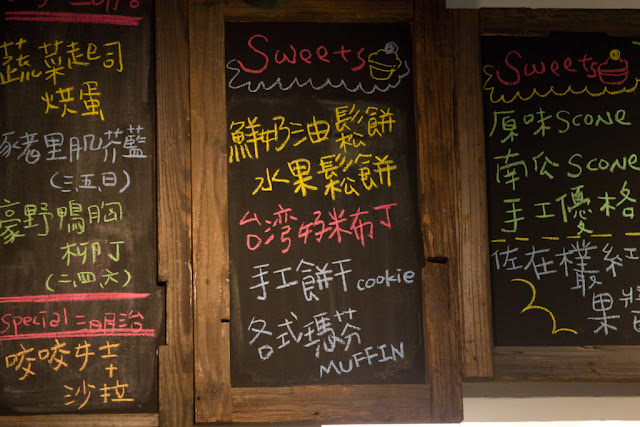 蔬菜起司
烘蛋
豬者里肌芥藍
(三.五.日)
濠野鴨胸
柳丁
(二.四.六)
special 三明治
咬咬牛士+
沙拉
Sweets
鮮奶油鬆餅
水果鬆餅
台湾好米布丁
手工餅干 cookie
各式瑪芬
MUFFIN
Sweets
原味 SCONE
南瓜 SCONE
手工優格
佐在樸紅
果醬